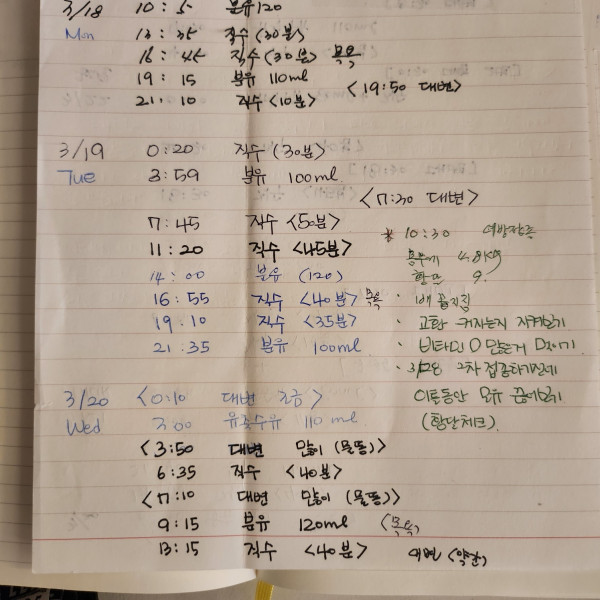 3/18 10 : 5 분유 120
Mon 13 : 35 직수 (30분)
16 : 45 직수 (30분) 목욕
19 : 15 분유 110ml <19:50 대변>
21 : 10 직수 <10분>
3/19 0 : 20 직수 (30분)
Tue 3 : 59 분유 100ml
<7:30 대변>
7 : 45 직수 <50분>
* 10 : 30 예방접종
11 : 20 직수 <45분>
몸무게 4.8kg
14 : 00 분유 (120)
황달 9.
16 : 55 직수 <40분> 목욕
· 배 꼽
19 : 10 직수 <35분>
· 고환 커지는지 지켜보기
21 : 35 분유 100ml
· 비타민 D
· 3/28 2차 접종하기전에
3/20 <0:10 대변 조금>
이틀동안 모유 끊어보기
Wed 3:00 유축수유 110 ml
(황달체크).
<3:50 대변 많이 (물똥)>
6 : 35 직수 <40분>
<7:10 대변 많이 (물똥)>
9 : 15 분유 120ml (목욕)
13 : 15 직수 <40분> 대변 <약간>